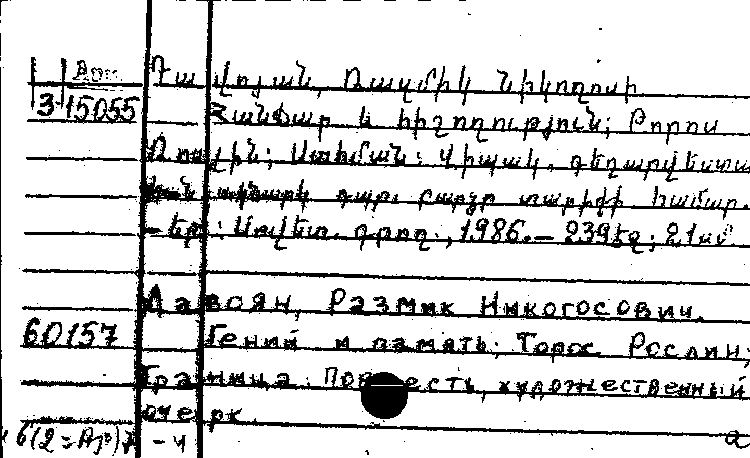 Арм.
3-15055
Դավոյան, Ռազմիկ Նիկողոսի
Հանճար և հիշողություն; Թորոս
Ռոսլին; Սահման: Վիպակ, գեղարվեստա
կան ակնարկ դպր. բարձր տարիքի համար.
– Եր.: Սովետ. գրող, 1986. – 239 էջ; 21 սմ
Давоян, Размик Никогосович.
60157 Гений и память; Торос Рослин;
Граница: Повесть, художественный
очерк.
6(2=Ар)7 – 4